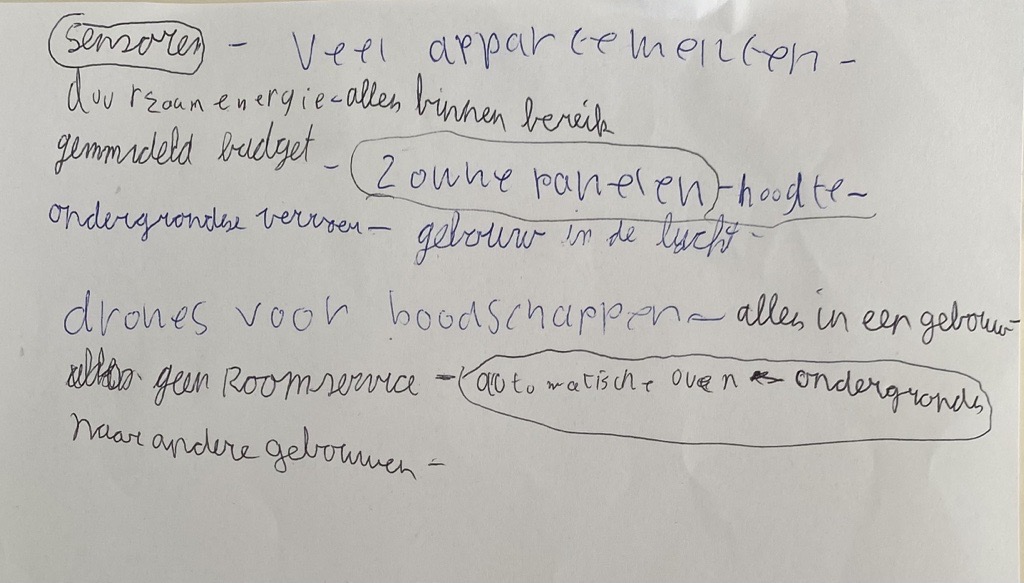 sensoren - veel appartementen -
duurzaam energie - alles binnen bereik
gemmideld budget - zonne panelen - hoogte -
ondergrondse vervoer - gebouw in de lucht -
drones voor boodschappen - alles in een gebouw -
geen Roomservice - automatische oven - ondergronds
naar andere gebouwen -